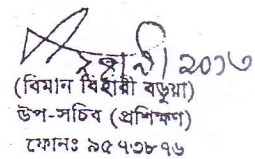 ২০১৩
(বিমান বিহারী বড়ুয়া)
উপ-সচিব (প্রশিক্ষণ)
ফোনঃ ৯৫৭৩৮৭৬